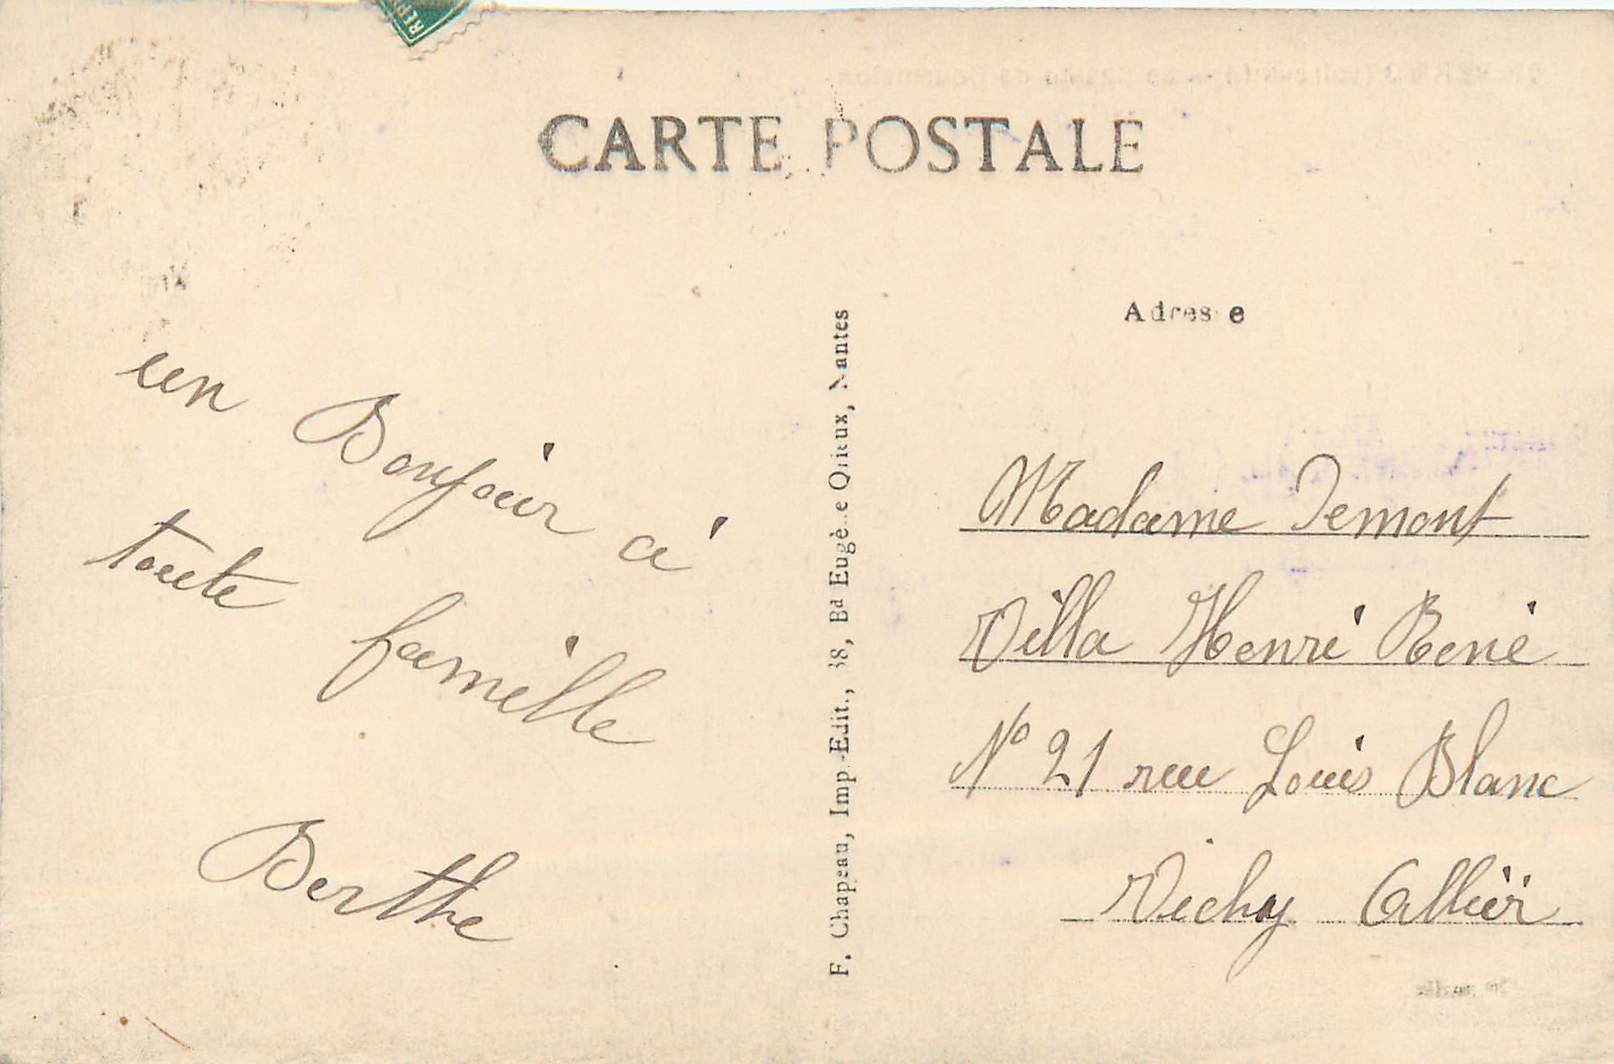 CARTE POSTALE
un Bonjour à
toute famille
Berthe
F. Chapeau, Imp.-Edit., 38, Bd Eugène Orieux, Nantes
Adresse
Madame Demont
Villa Henri René
N° 21 rue Louis Blanc
Vichy Allier